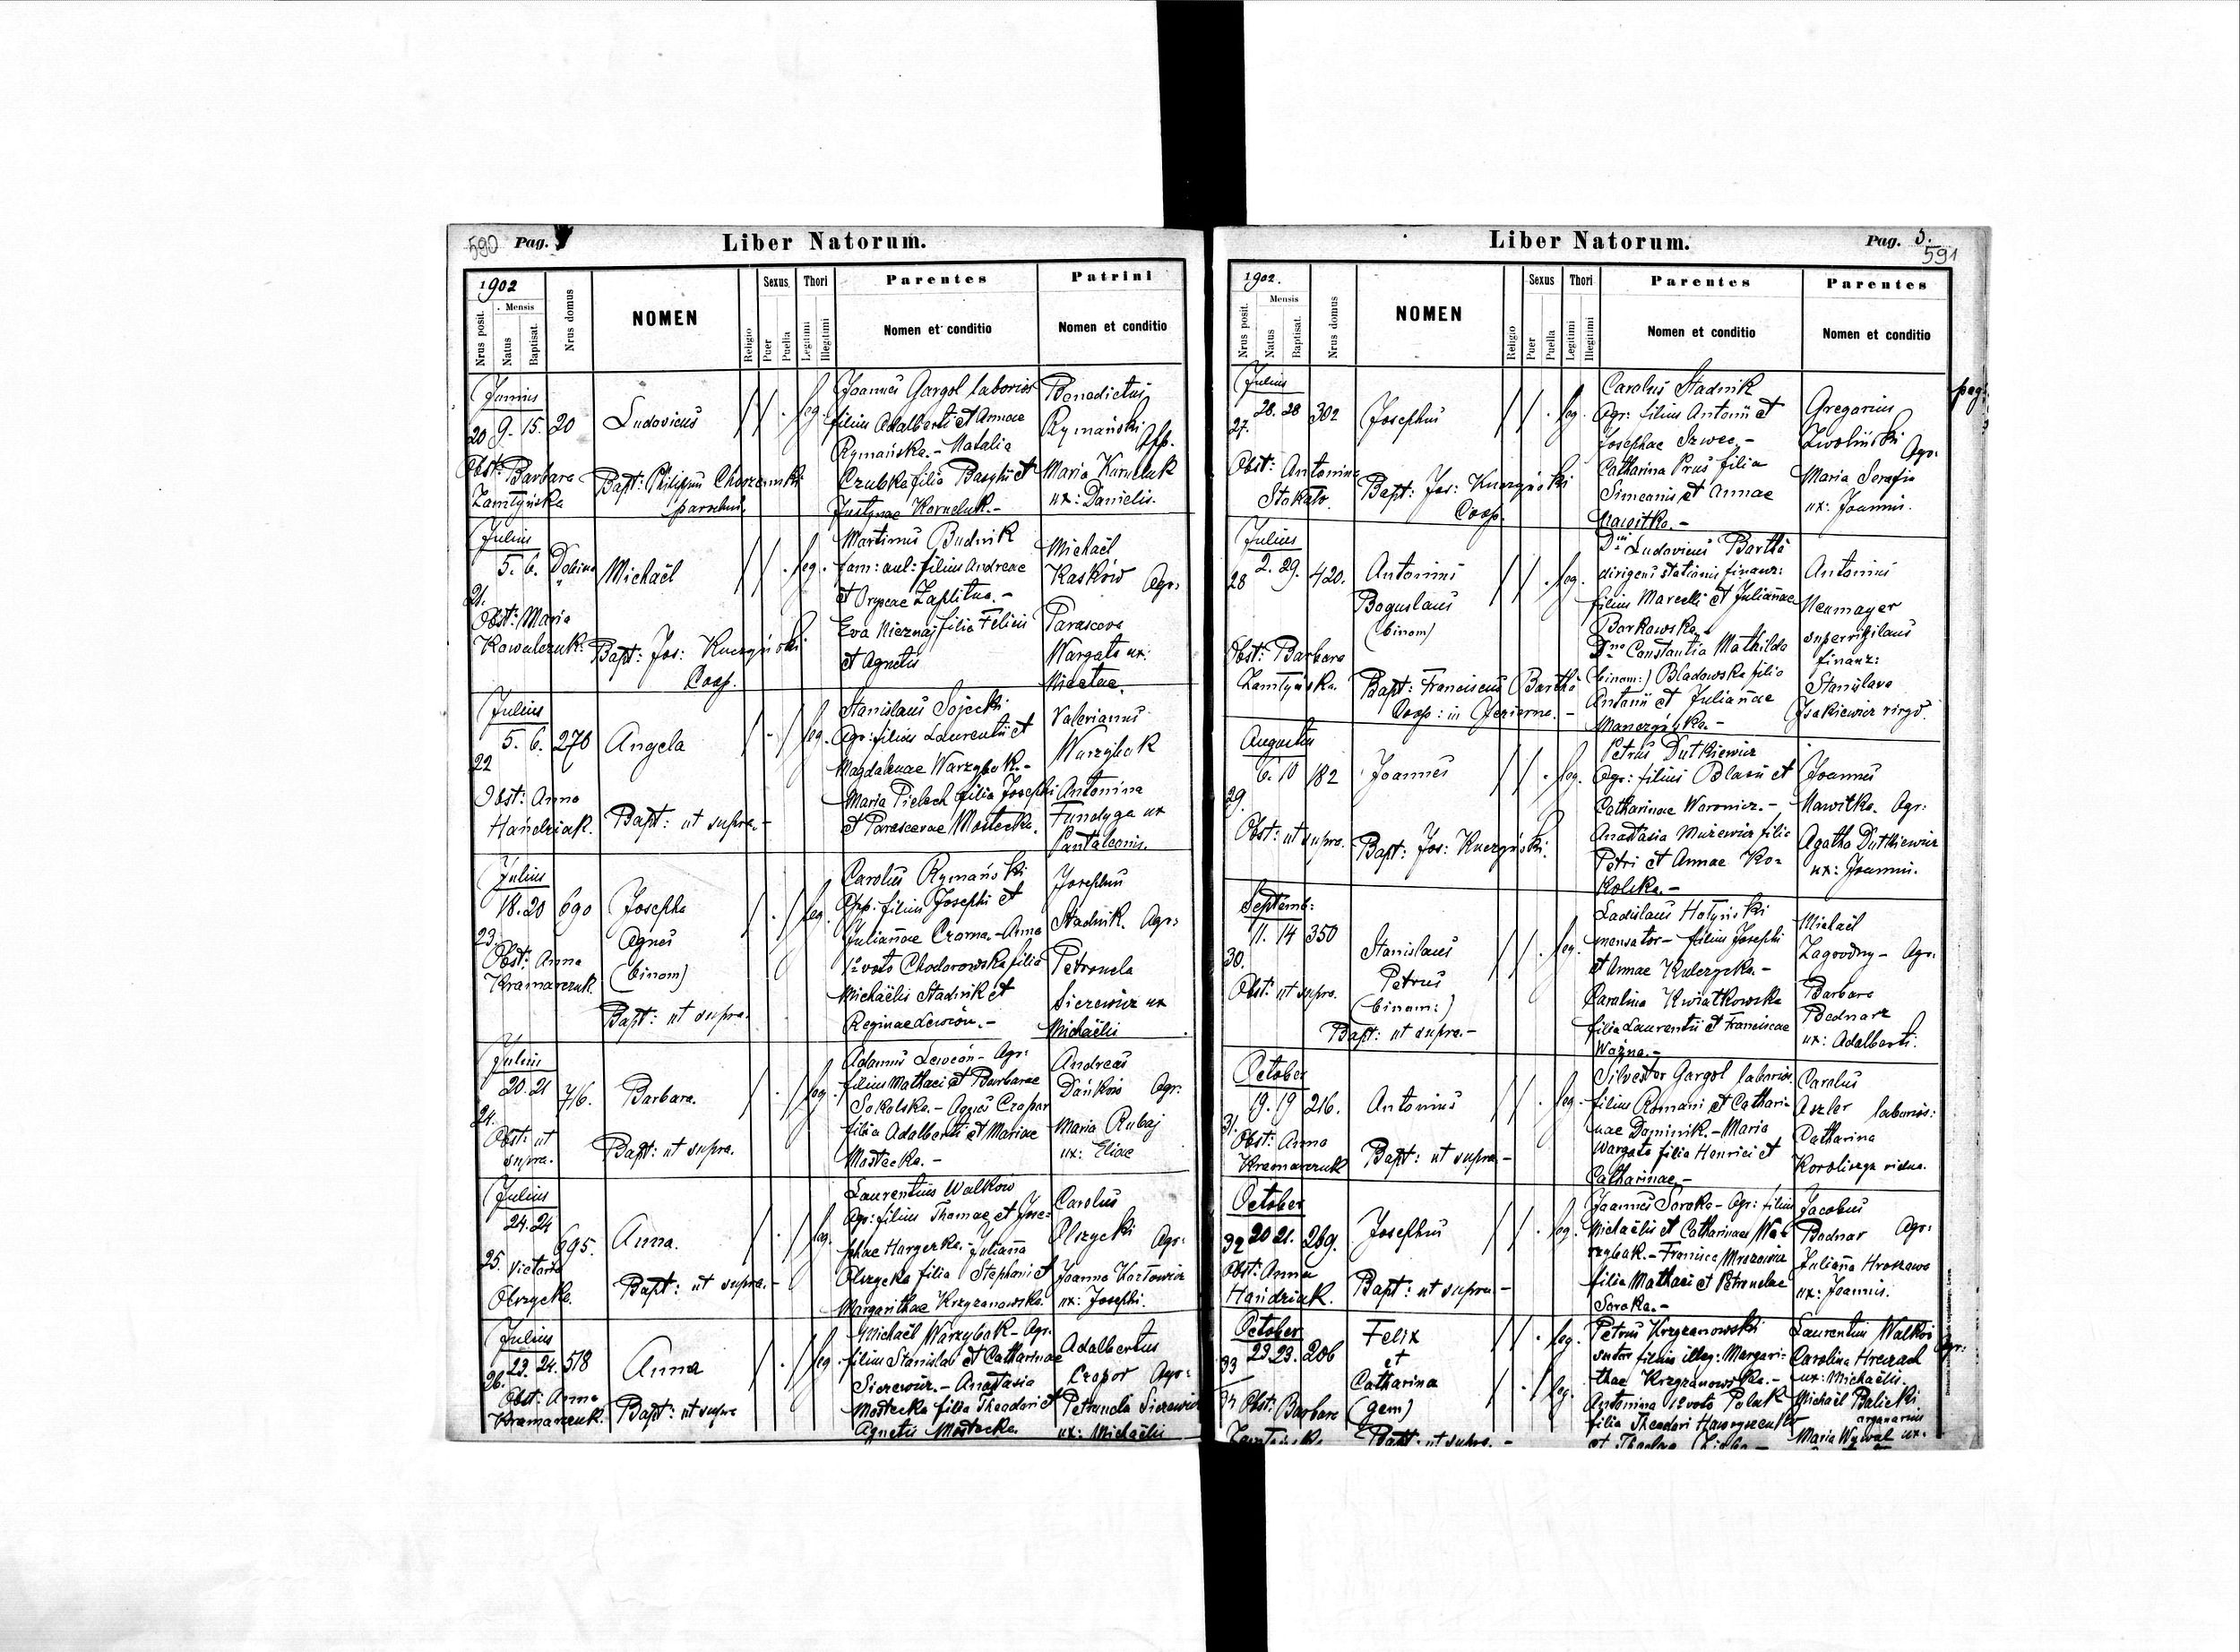 590 Pag.
Liber Natorum.
1902
Nrus posit.
Mensis
Natus
Baptisat.
Nrus domus
NOMEN
Religio
Sexus
Puer
Puella
Thori
Legitimi
Illegitimi
Parentes
Nomen et conditio
Patrini
Nomen et conditio
Junius
20 9. 15. 20
Ludovicus
leg.
Obst: Barbara
Zamłyńska
Bapt: Philippus
parochus.
Joannes Gargol laborios
filius Adalberti et Annae
Rymańska. - Natalia
Czubka filia Basylii et
Justynae Korneluk. -
Benedictus
Rymański Opp.
Maria Korneluk
ux: Danielis.
Julius
21. 5. 6.
Michaël
leg.
Obst: Maria
Kowalczuk.
Bapt: Jos: Kuczyński
Coop.
Martinus Budnik
fam: aul: filius Andreae
et
Eva Nieznaj filia Felicis
et Agnetis
Michaël
Kaśków Agr:
Parasceva
Wargata ux:
Nicetae.
Julius
22 5. 6. 276
Angela
leg.
Obst: Anna
Hańdziak.
Bapt: ut supra. -
Stanislaus Sojecki
Agr: filius Laurentii et
Magdalenae Warzybok. -
Maria Pielech filia Josephi
et Parascevae Mostecka.
Valerianus
Warzybok
Antonina
Fundyga ux
Pantaleonis.
Julius
23. 18. 20 690
Josepha
Agnes
(binom)
leg.
Obst: Anna
Kramarczuk.
Bapt: ut supra.
Carolus Rymański
Opp. filius Josephi et
Juliannae Czorna. - Anna
1º voto Chodorowska filia
Michaëlis Stadnik et
Reginae Lewcón. -
Josephus
Stadnik. Agr:
Petronela
Sierewicz ux
Michaëlis
Julius
24. 20. 21 716.
Barbara.
leg.
Obst: ut
supra.
Bapt: ut supra.
Adamus Lewcón - Agr:
filius Mathaei et Barbarae
Sokolska. - Agnes Czopor
filia Adalberti et Mariae
Mostecka. -
Andreas
Dańków Agr:
Maria Rubaj
ux: Eliae
Julius
25. 24. 24 695.
Anna.
leg.
Victoria
Olszycka.
Bapt: ut supra. -
Laurentius Walkow
Agr: filius Thomae et Jose=
phae Hargerka. - Julianna
Olszycka filia Stephani et
Margarithae Krzyzanowska.
Carolus
Olszycki Agr:
Joanna Kozłowicz
ux: Josephi.
Julius
26. 23. 24. 518
Anna
leg.
Obst: Anna
Kramarczuk.
Bapt: ut supra
Michaël Warzybok - Agr.
filius Stanislai et Catharinae
Sierewicz. - Anastasia
Mostecka filia Theodori et
Agnetis Mostecka.
Adalbertus
Czopor Agr:
Petronela Sierewicz
ux: Michaëlis
Liber Natorum.
Pag. 5.
591
1902.
Nrus posit.
Mensis
Natus
Baptisat.
Nrus domus
NOMEN
Religio
Sexus
Puer
Puella
Thori
Legitimi
Illegitimi
Parentes
Nomen et conditio
Parentes
Nomen et conditio
Julius
27. 28. 28 302
Josephus
leg.
Obst: Antonina
Bapt: Jos: Kuczyński
Coop.
Carolus Stadnik
Agr: filius Antonii et
Josephae Szwec. -
Catharina Prus filia
Simeonis et Annae
Mawitka. -
Gregorius
Zwoliński Agr.
Maria Serafin
ux: Joannis.
Julius
28 2. 29. 420.
Antonius
Boguslaus
(binom)
leg.
Obst: Barbara
Zamłyńska.
Bapt: Franciscus Barthà
Coop: in Jezierna. -
Dnus Ludovicus Barthà
dirigens stationis finanz:
filius Marcelli et Juliannae
Borkowska. -
Dna Constantia Mathilda
(binom:) Bladowska filia
Antonii et Juliannae
Manczyńska. -
Antonius
Neumayer
supervigilans
finanz:
Stanislava
Isakiewicz virgo.
Augustus
29. 6. 10 182
Joannes
leg.
Obst: ut supra.
Bapt: Jos: Kuczyński.
Petrus Dutkiewicz
Agr: filius Blasii et
Catharinae Woronicz. -
Anastasia Murewicz filia
Petri et Annae Ko=
kolska. -
Joannes
Mawitka. Agr:
Agatha Dutkiewicz
ux: Joannis.
Septemb:
30. 11. 14 350
Stanislaus
Petrus
(binom:)
leg.
Obst: ut supra.
Bapt: ut supra. -
Ladislaus Hołyński
mensator - filius Josephi
et Annae Kulczycka. -
Carolina Kwiatkowska
filia Laurentii et Franciscae
Ważna. -
Michaël
Zagrodny - Agr.
Barbara
Bednarz
ux: Adalberti.
October
31. 19. 19 216.
Antonius
leg.
Obst: Anna
Kramarczuk
Bapt: ut supra -
Silvester Gargol laborios.
filius Romani et Cathari=
nae Dominik. - Maria
Wargata filia Henrici et
Catharinae. -
Carolus
Aszler laborios:
Catharina
vidua.
October
32 20 21. 269.
Josephus
leg.
Obst: Anna
Hańdziak.
Bapt: ut supra -
Joannes Soroka - Agr: filius
Michaëlis et Catharinae Wa=
rzybok. - Francisca Mrozowicz
filia Mathaei et Petronelae
Soroka. -
Jacobus
Bodnar Agr:
Julianna Hroszowa
ux: Joannis.
October
33 23 23. 206
Felix
et
Catharina
(gem)
leg.
leg.
34 Obst: Barbara
Zamłyńska
Bapt: ut supra. -
Petrus Krzyzanowski
sutor filius illeg: Margari=
thae Krzyzanowska. -
Antonina 1º voto Polak
filia Theodori
Laurentius Walków Agr:
Carolina
ux: Michaëlis.
Michaël Balicki
organarius
Maria Wywal ux.